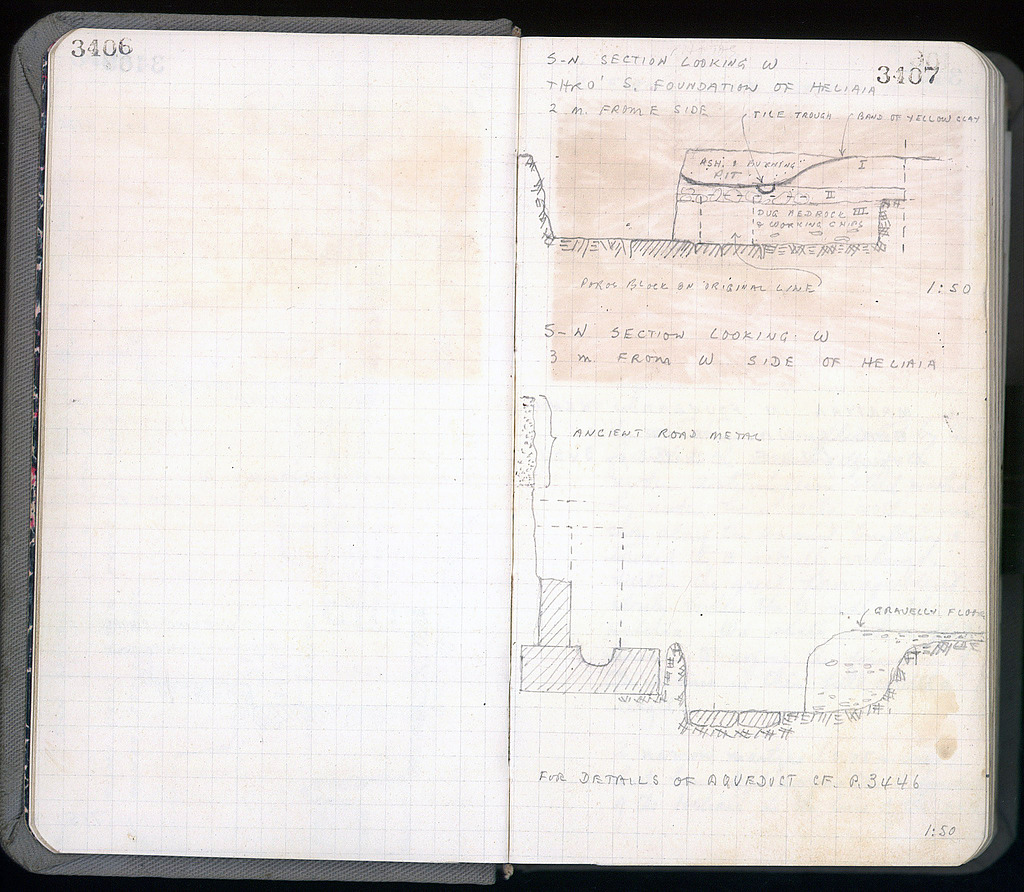 3406
3407
S-N SECTION LOOKING W
THRO' S. FOUNDATION OF HELIAIA
2 M. FROM E SIDE
TILE TROUGH
BAND OF YELLOW CLAY
ASH & BURNING
PIT
I
II
III
DUG BEDROCK
& WORKING CHIPS
POROS BLOCK ON ORIGINAL LINE
1:50
S-N SECTION LOOKING W
3 M. FROM W SIDE OF HELIAIA
ANCIENT ROAD METAL
GRAVELLY FLOOR
FOR DETAILS OF AQUEDUCT CF. P. 3446
1:50